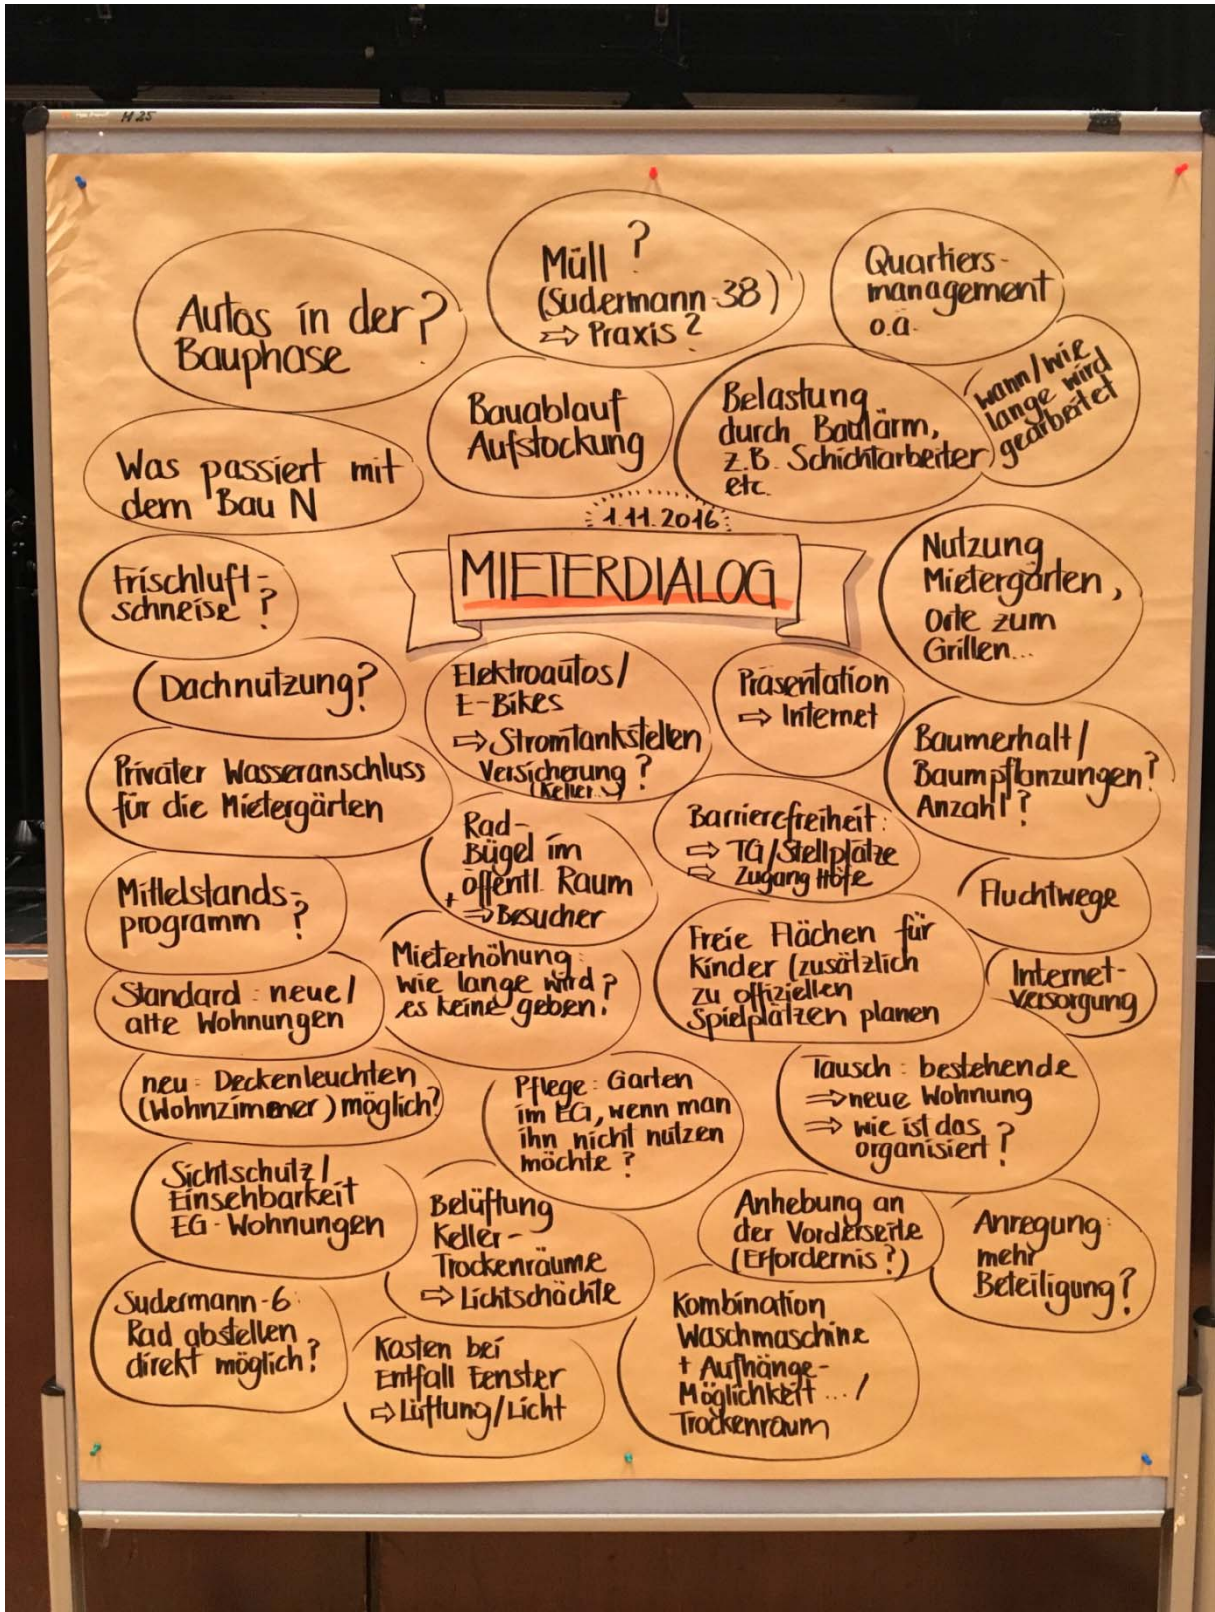 M 25
Autos in der?
Bauphase
Müll ?
(Sudermann-38)
⇨ Praxis?
Quartiers-
management
o.ä.
Bauablauf
Aufstockung
Belastung
durch Baulärm,
z.B. Schichtarbeiter
etc.
wann/wie
lange wird
gearbeitet
Was passiert mit
dem Bau N
1.11.2016
MIETERDIALOG
Frischluft-
schneise ?
Nutzung
Mietergärten,
Orte zum
Grillen...
Dachnutzung?
Elektroautos/
E-Bikes
⇨ Stromtankstellen
Versicherung ?
(Keller..)
Präsentation
⇨ Internet
Baumerhalt/
Baumpflanzungen?
Anzahl?
Privater Wasseranschluss
für die Mietergärten
Rad-
Bügel im
öffentl. Raum
+ ⇨ Besucher
Barrierefreiheit:
⇨ TG/Stellplätze
⇨ Zugang Höfe
Fluchtwege
Mittelstands-
programm ?
Mieterhöhung:
wie lange wird ?
es keine geben!
Freie Flächen für
Kinder (zusätzlich
zu offiziellen
Spielplätzen planen
Internet-
versorgung
Standard: neue/
alte Wohnungen
neu: Deckenleuchten
(Wohnzimmer) möglich?
Pflege: Garten
im EG, wenn man
ihn nicht nutzen
möchte ?
Tausch: bestehende
⇨ neue Wohnung
⇨ wie ist das
organisiert ?
Sichtschutz/
Einsehbarkeit
EG-Wohnungen
Belüftung
Keller-
Trockenräume
⇨ Lichtschächte
Anhebung an
der Vorderseite
(Erfordernis?)
Anregung:
mehr
Beteiligung?
Sudermann-6:
Rad abstellen
direkt möglich?
Kosten bei
Entfall Fenster
⇨ Lüftung/Licht
Kombination
Waschmaschine
+ Aufhänge-
Möglichkeit.../
Trockenraum